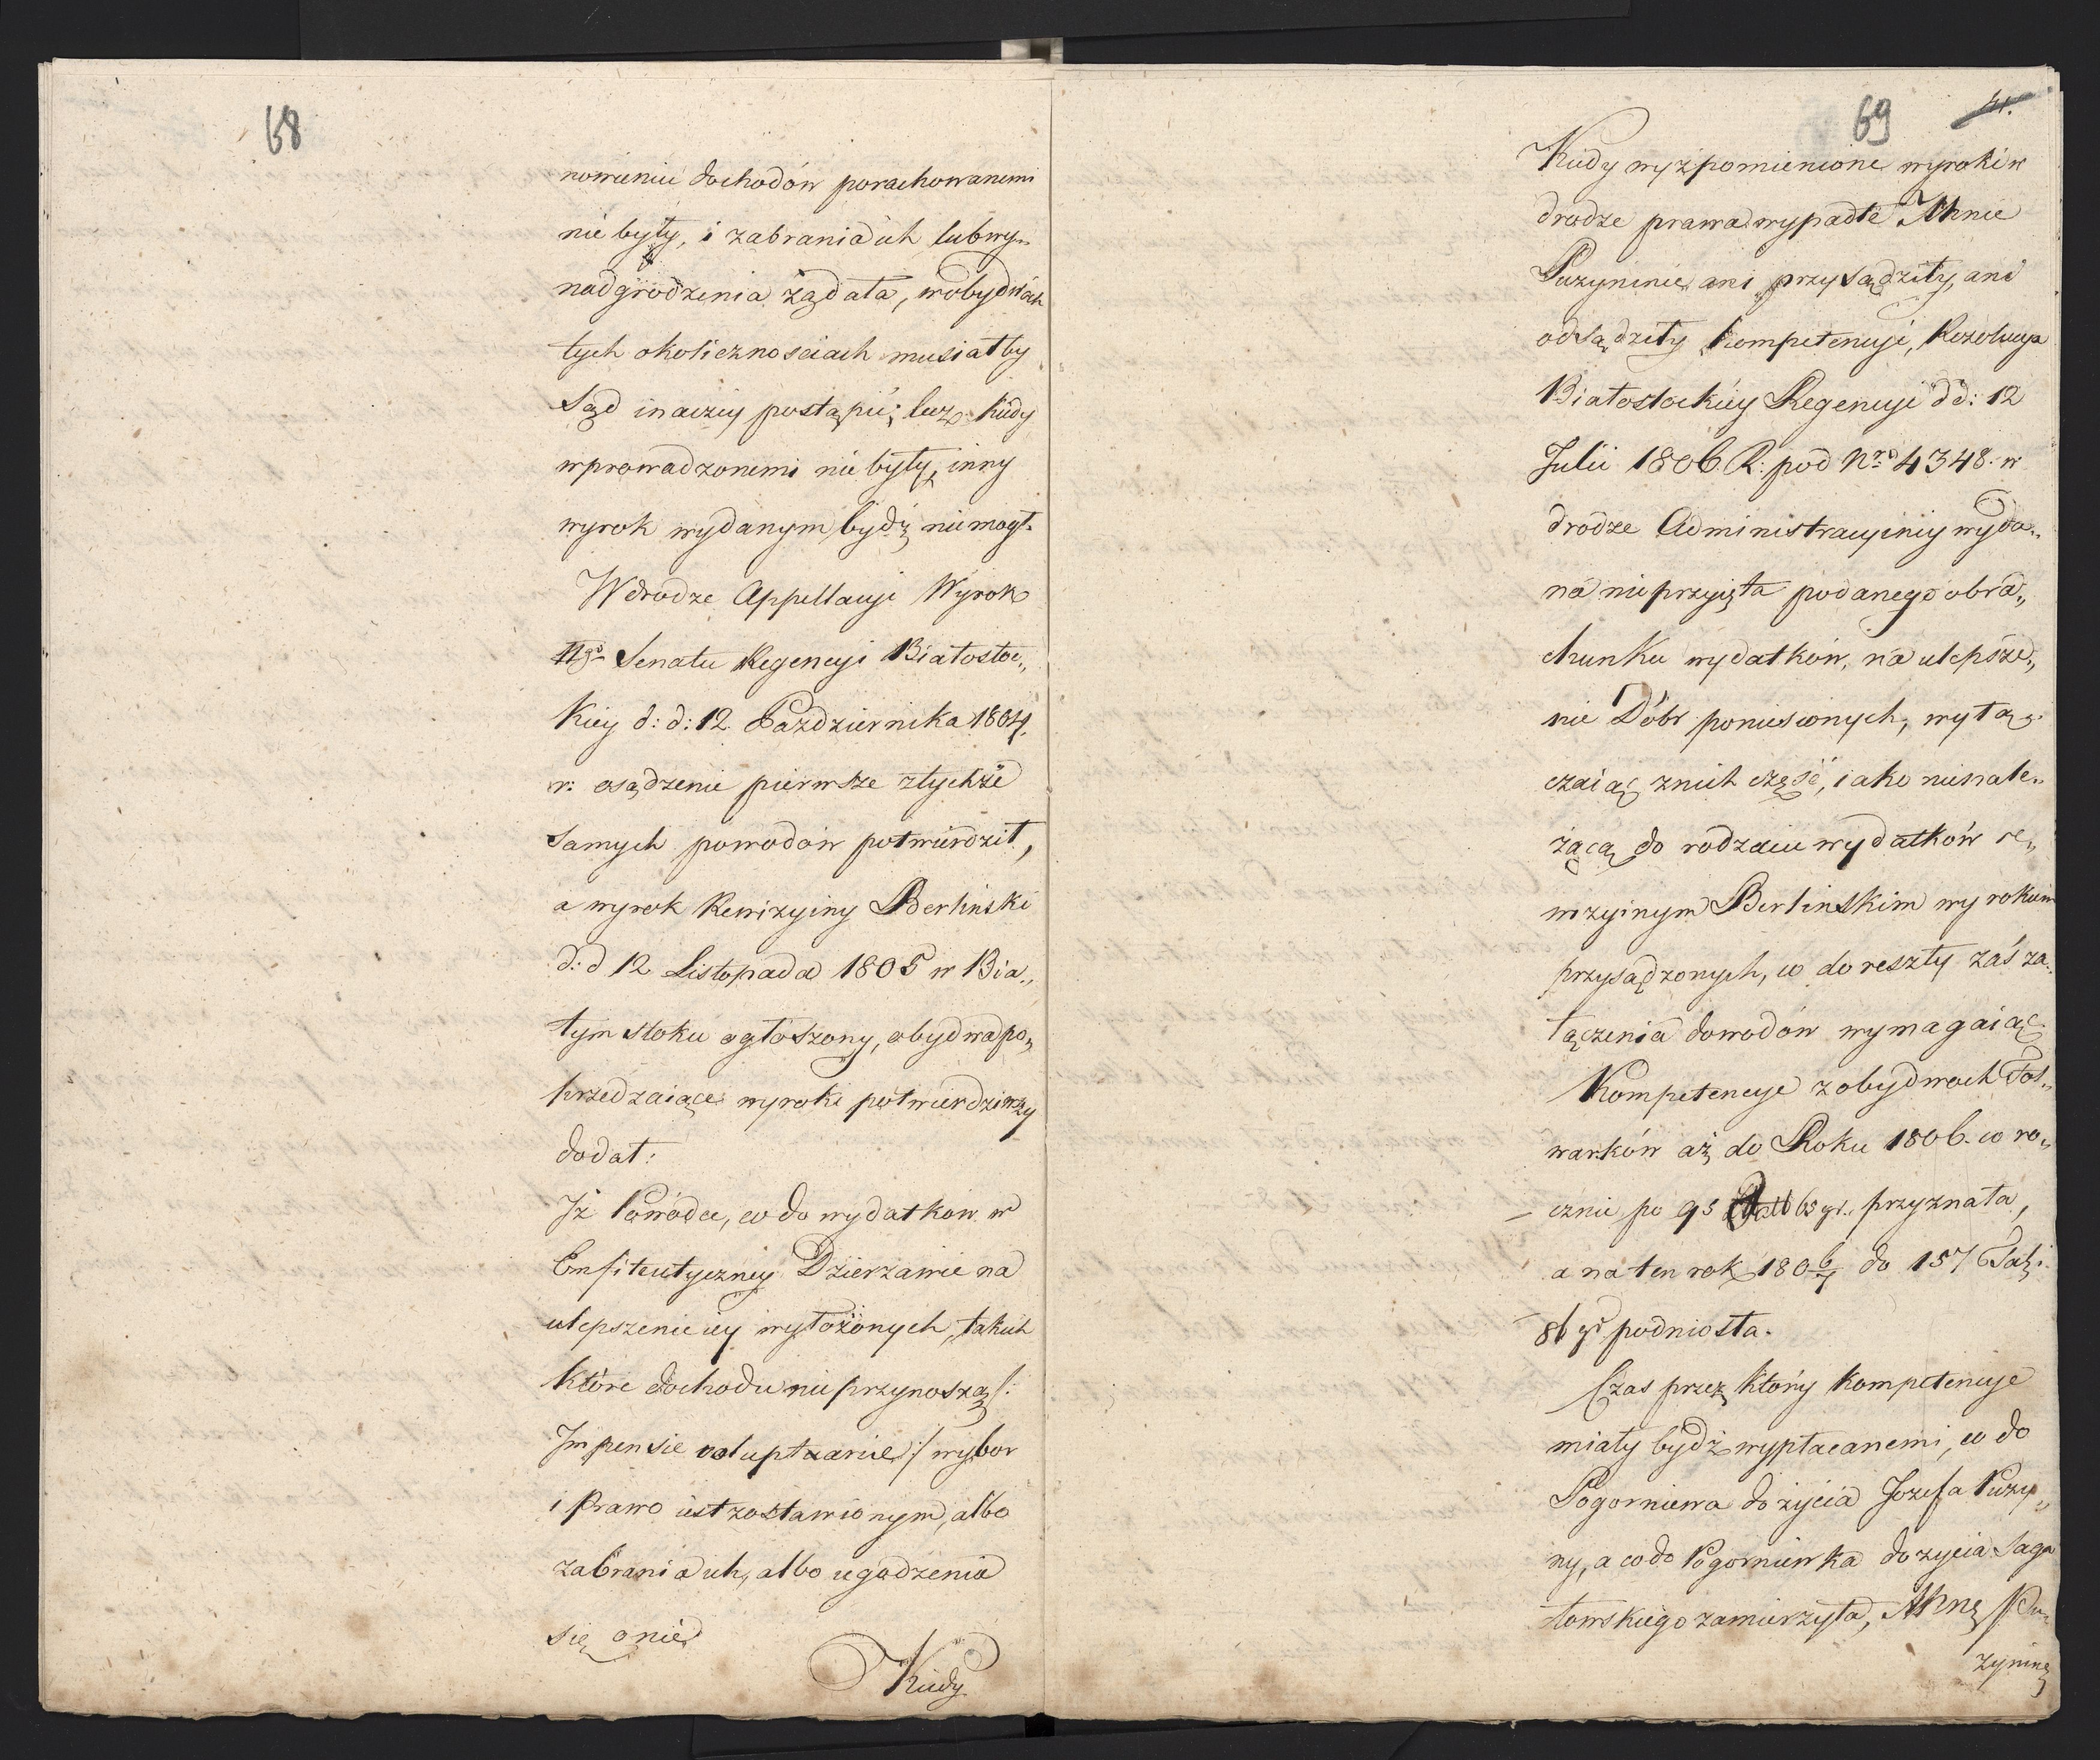 68
nowieniu dochodów porachowanemi
nie były, i zabrania ich lub wy„
nadgrodzenia żądała, w obydwóch
tych okolicznosciach musiałby
Sąd inaczey postąpić; lecz kiedy
wprowadzonemi nie były, inny
wyrok wydanym bydź nie mogł.
W drodze Appellacyi Wyrok
IIgo Senatu Regencyi Białostoc„
kiey d: d: 12 Pazdziernika 1804.
r: osądzenie pierwsze z tychże
samych powodów potwierdził,
a wyrok Rewizyiny Berlinski
d: d 12 Listopada 1805 w Bia„
łym stoku ogłoszony, obydwa po„
przedzaiące wyroki potwierdziwszy
dodał:
Iż Powódce, co do wydatkow w
Emfiteutyczney Dzierzawie na
ulepszenie iey wyłożonych, takich
które dochodu nie przynoszą /:
Impensie voluptuarie :/ wybor
i Prawo iest zostawionym, albo
zabrania ich, albo ugodzenia
się o nie.
Kiedy
69
Kiedy wyżpomienione wyroki w
drodze prawa wypadłe JPanie
Puzyninie ani przysądziły, ani
odsądziły kompetencyi, Rezolucya
Białostockiey Regencyi dd: 12
Julii 1806 R. pod Nro 4348. w
drodze Administracyiney wyda„
na nieprzyięta podanego obra„
chunku wydatków, na ulepsze„
nie Dóbr poniesionych, wyłą„
czaiąc z nich część, iako nienale„
żącą do rodzaiu wydatków re„
wizyinym Berlinskim wyrokiem
przysądzonych, co do reszty zaś za„
łączenia dowodów wymagaiąc
Kompetencye z obydwoch Fol„
warków aż do Roku 1806. co ro„
cznie po 95 Tal 63 gr. przyznała,
a na ten rok 180 6/7 do 157 Tal:
86 gr podniosła.
Czas przez który kompetencye
miały bydź wypłacanemi, co do
Pogorniewa do życia Jozefa Puzy„
ny, a co do Pogorniewka do zycia Saga
towskiego zamierzyła, JPanę Pu„
zyninę